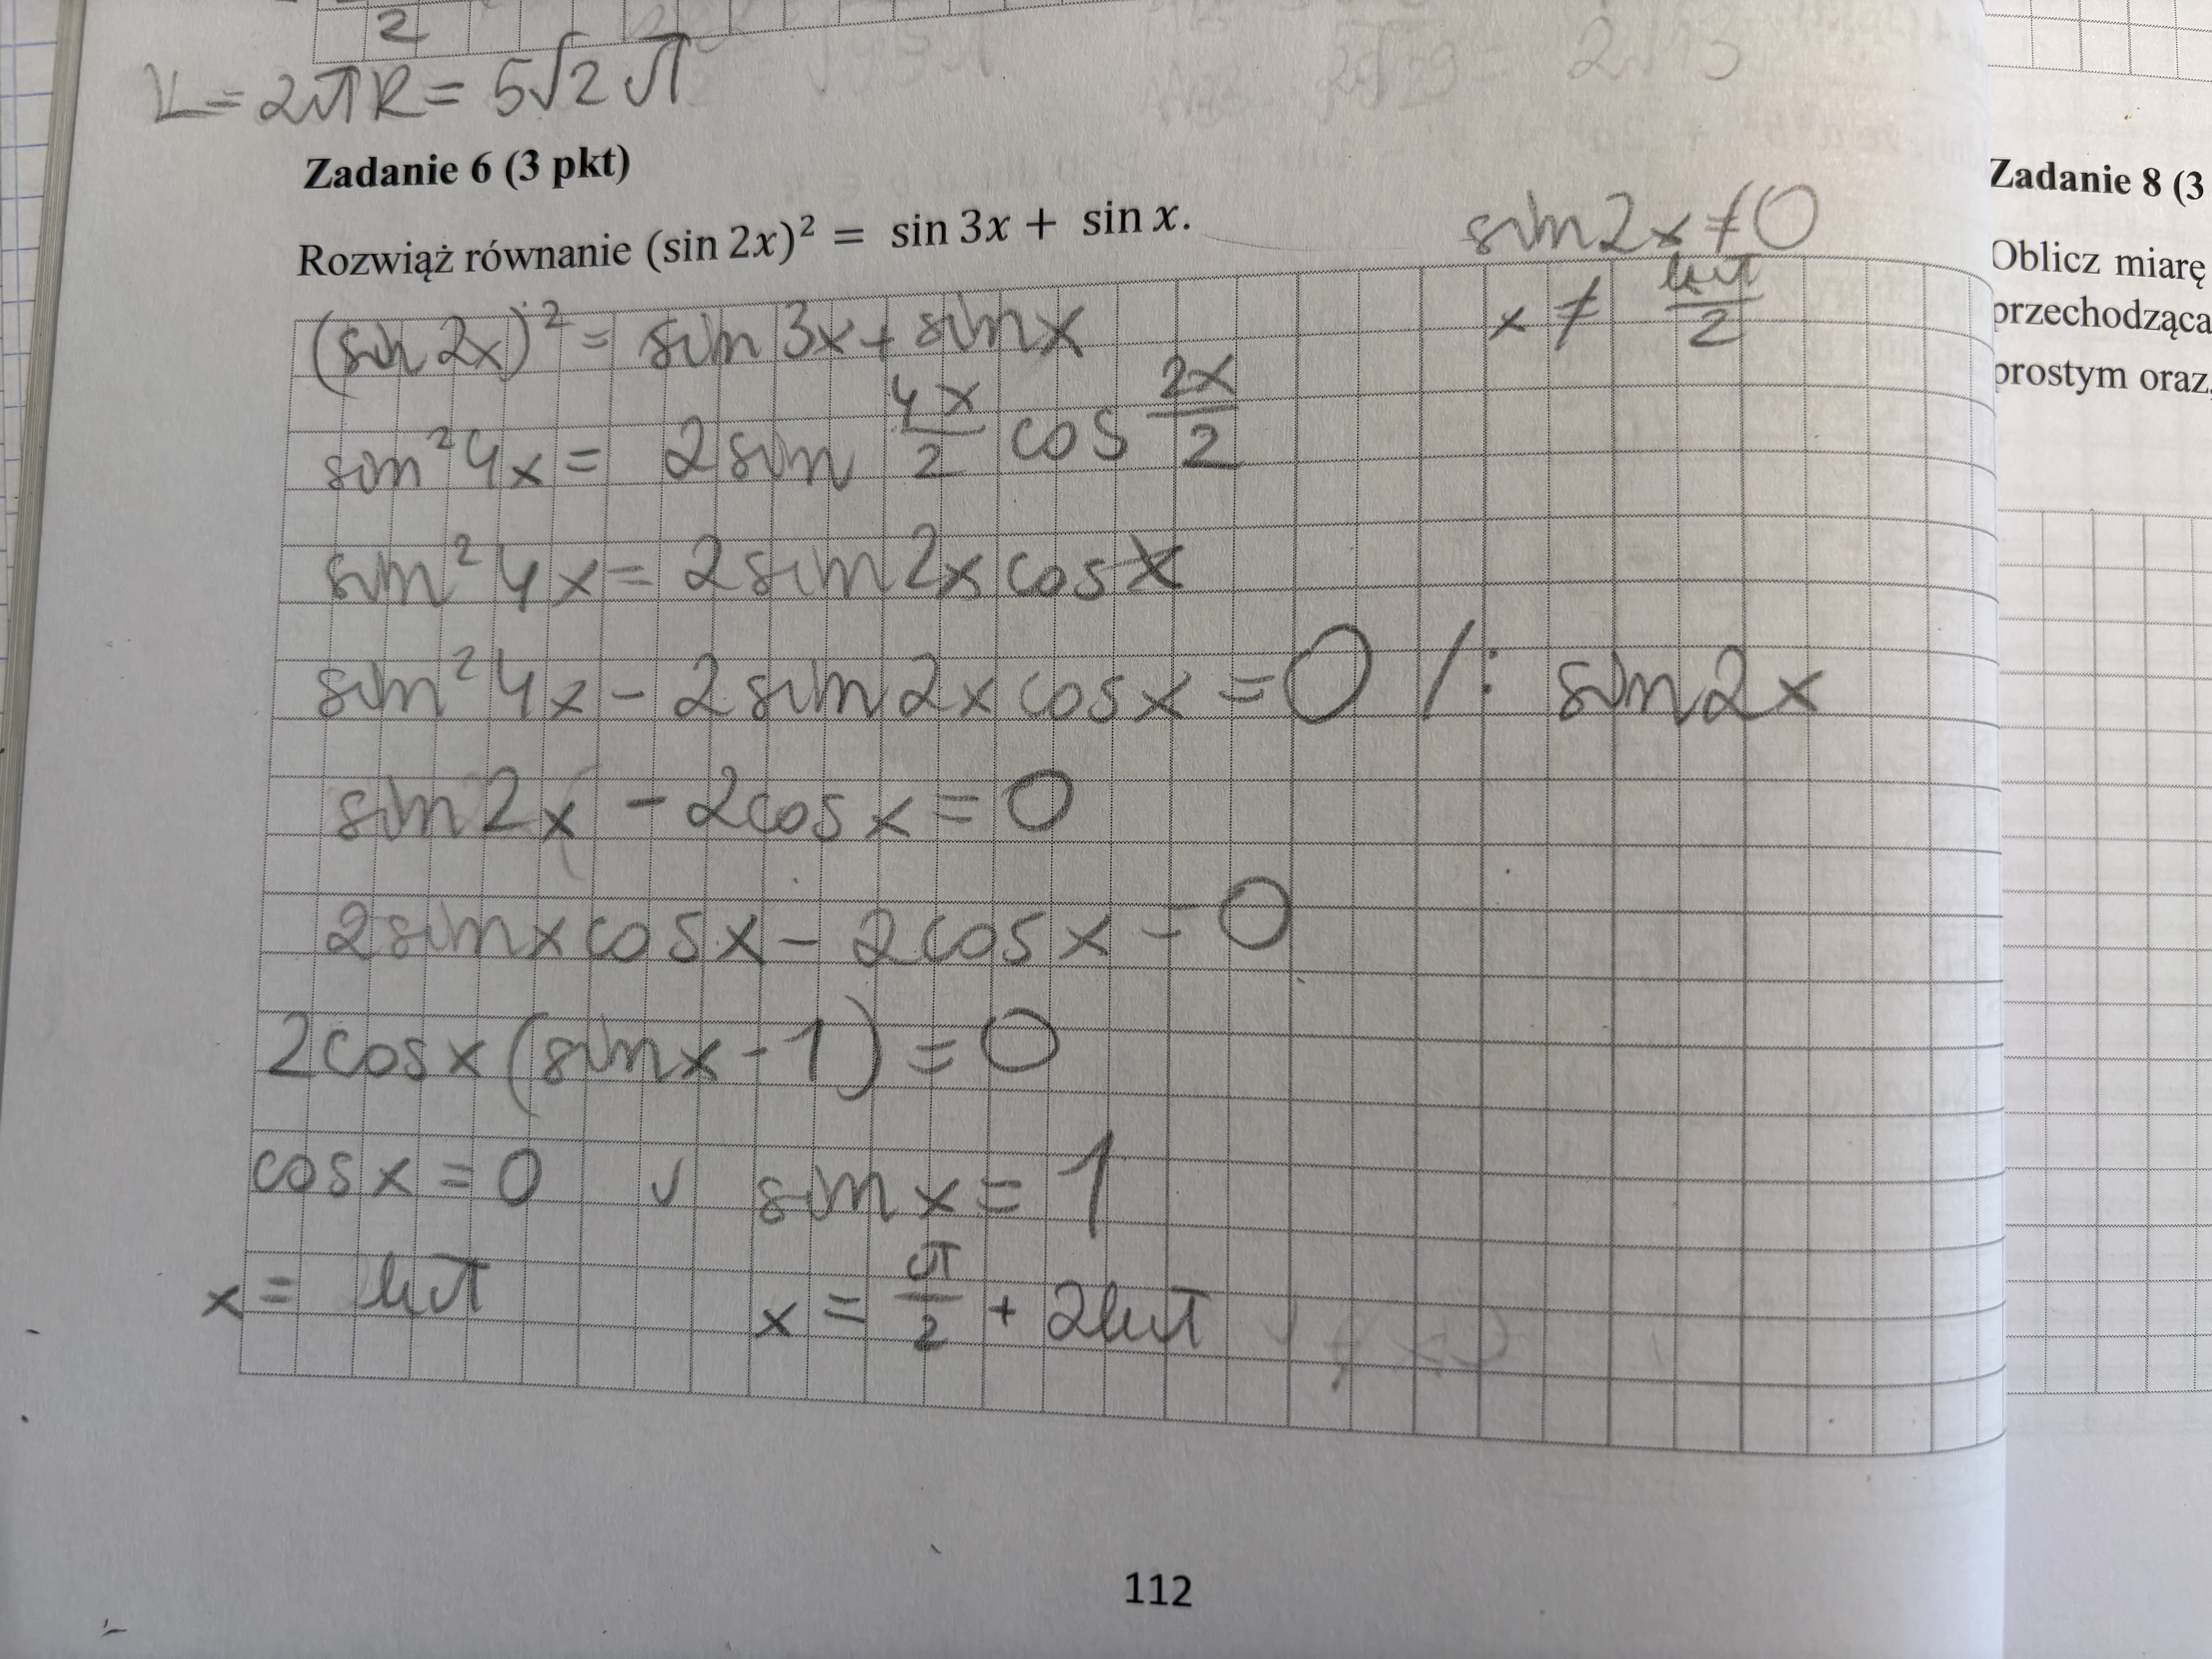 2
L = 2πR = 5√2 π
Zadanie 6 (3 pkt)
Rozwiąż równanie (sin 2x)² = sin 3x + sin x.
sin2x ≠ 0
x ≠ kπ/2
(sin 2x)² = sin 3x + sin x
sin²4x = 2 sin 4x/2 cos 2x/2
sin²4x = 2 sin 2x cos x
sin²4x - 2 sin 2x cos x = 0 /: sin 2x
sin 2x - 2cos x = 0
2 sin x cos x - 2cos x = 0
2cos x (sin x - 1) = 0
cos x = 0 ∨ sin x = 1
x = kπ x = π/2 + 2kπ
112
Zadanie 8 (3
Oblicz miarę
przechodząca
prostym oraz,